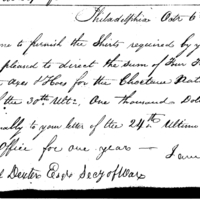 Philadelphia Octr 6
me to furnish the Shirts required by y
pleased to direct the sum of Four
axes & Hoes for the Choctaw Nat
of the 30th Ulto. One thousand Dol
ably to your letter of the 24th Ultimo
Office for one year — I am
l Dexter Esqre Secy of War